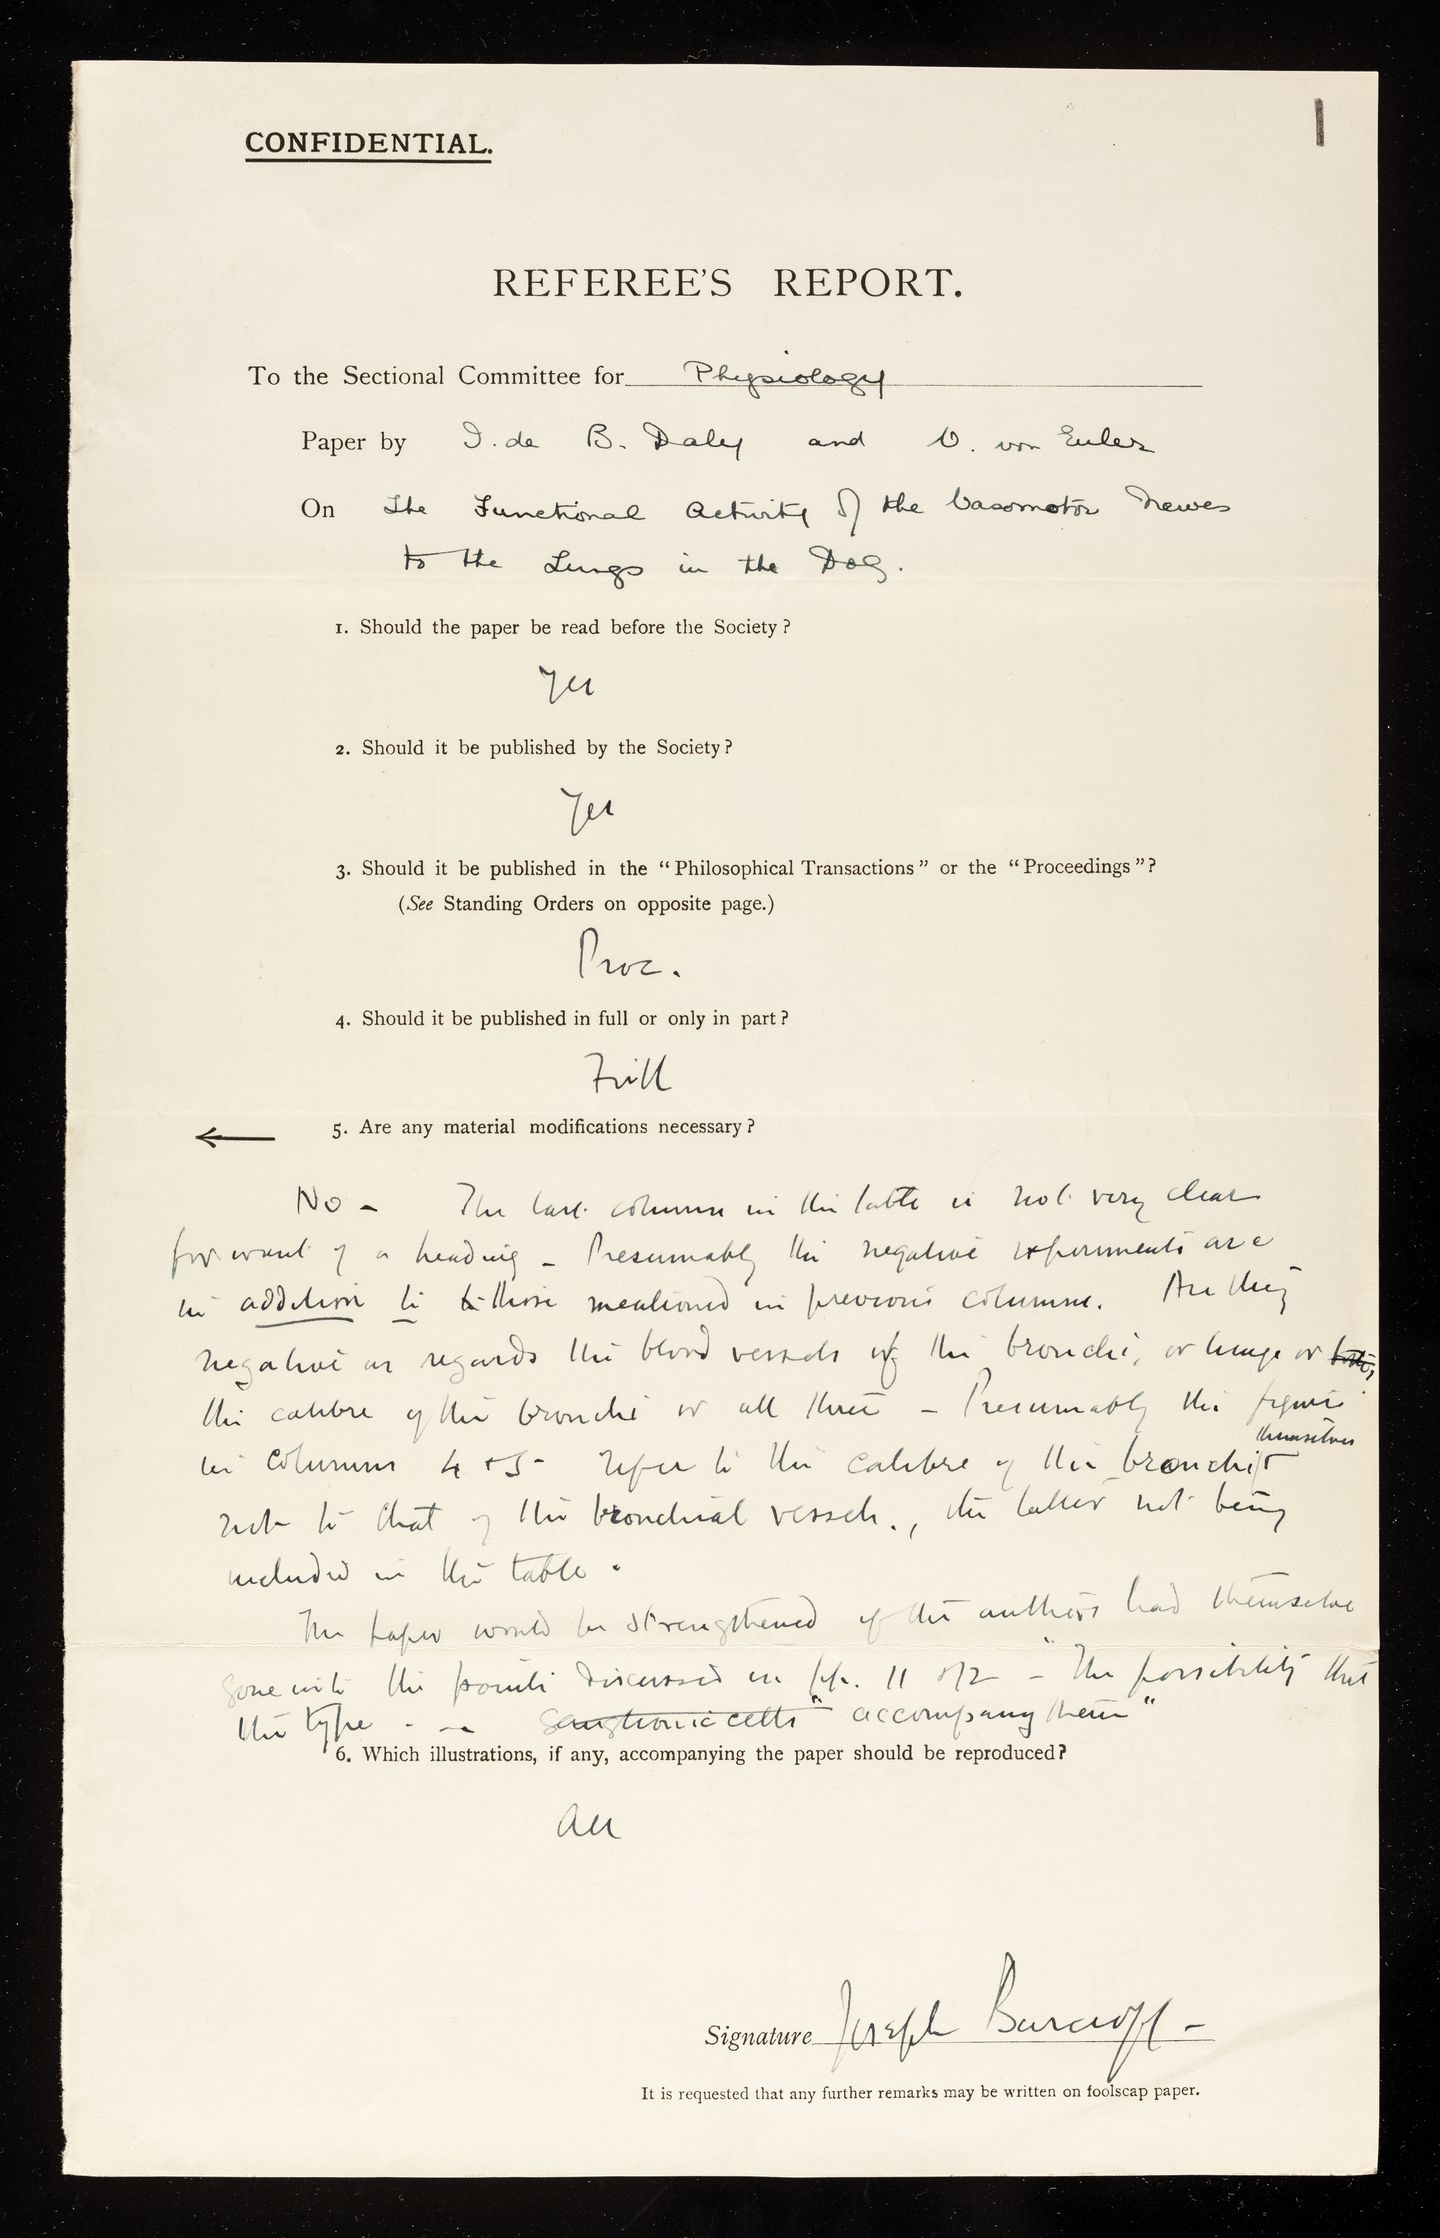 CONFIDENTIAL.
REFEREE'S REPORT.
To the Sectional Committee for Physiology
Paper by I. de B. Daly and U. von Euler
On The Functional Activity of the Vasomotor Nerves
to the Lungs in the Dog.
1. Should the paper be read before the Society?
Yes
2. Should it be published by the Society?
Yes
3. Should it be published in the "Philosophical Transactions" or the "Proceedings"?
(See Standing Orders on opposite page.)
Proc.
4. Should it be published in full or only in part?
Full
5. Are any material modifications necessary?
No - The last column in the table is not very clear
for want of a heading - Presumably the negative experiments are
in addition to those mentioned in previous columns. Are they
negative as regards the blood vessels of the bronchi, or lungs or
the calibre of the bronchi or all three - Presumably the figures
in columns 4 + 5 refer to the calibre of the bronchi themselves
not to that of the bronchial vessels, the latter not being
included in the table.
The paper would be strengthened if the authors had themselves
gone into the points discussed in pp. 11 & 12 - "The possibility that
the type - - ganglionic cells" accompany them"
6. Which illustrations, if any, accompanying the paper should be reproduced?
All
Signature Joseph Barcroft -
It is requested that any further remarks may be written on foolscap paper.